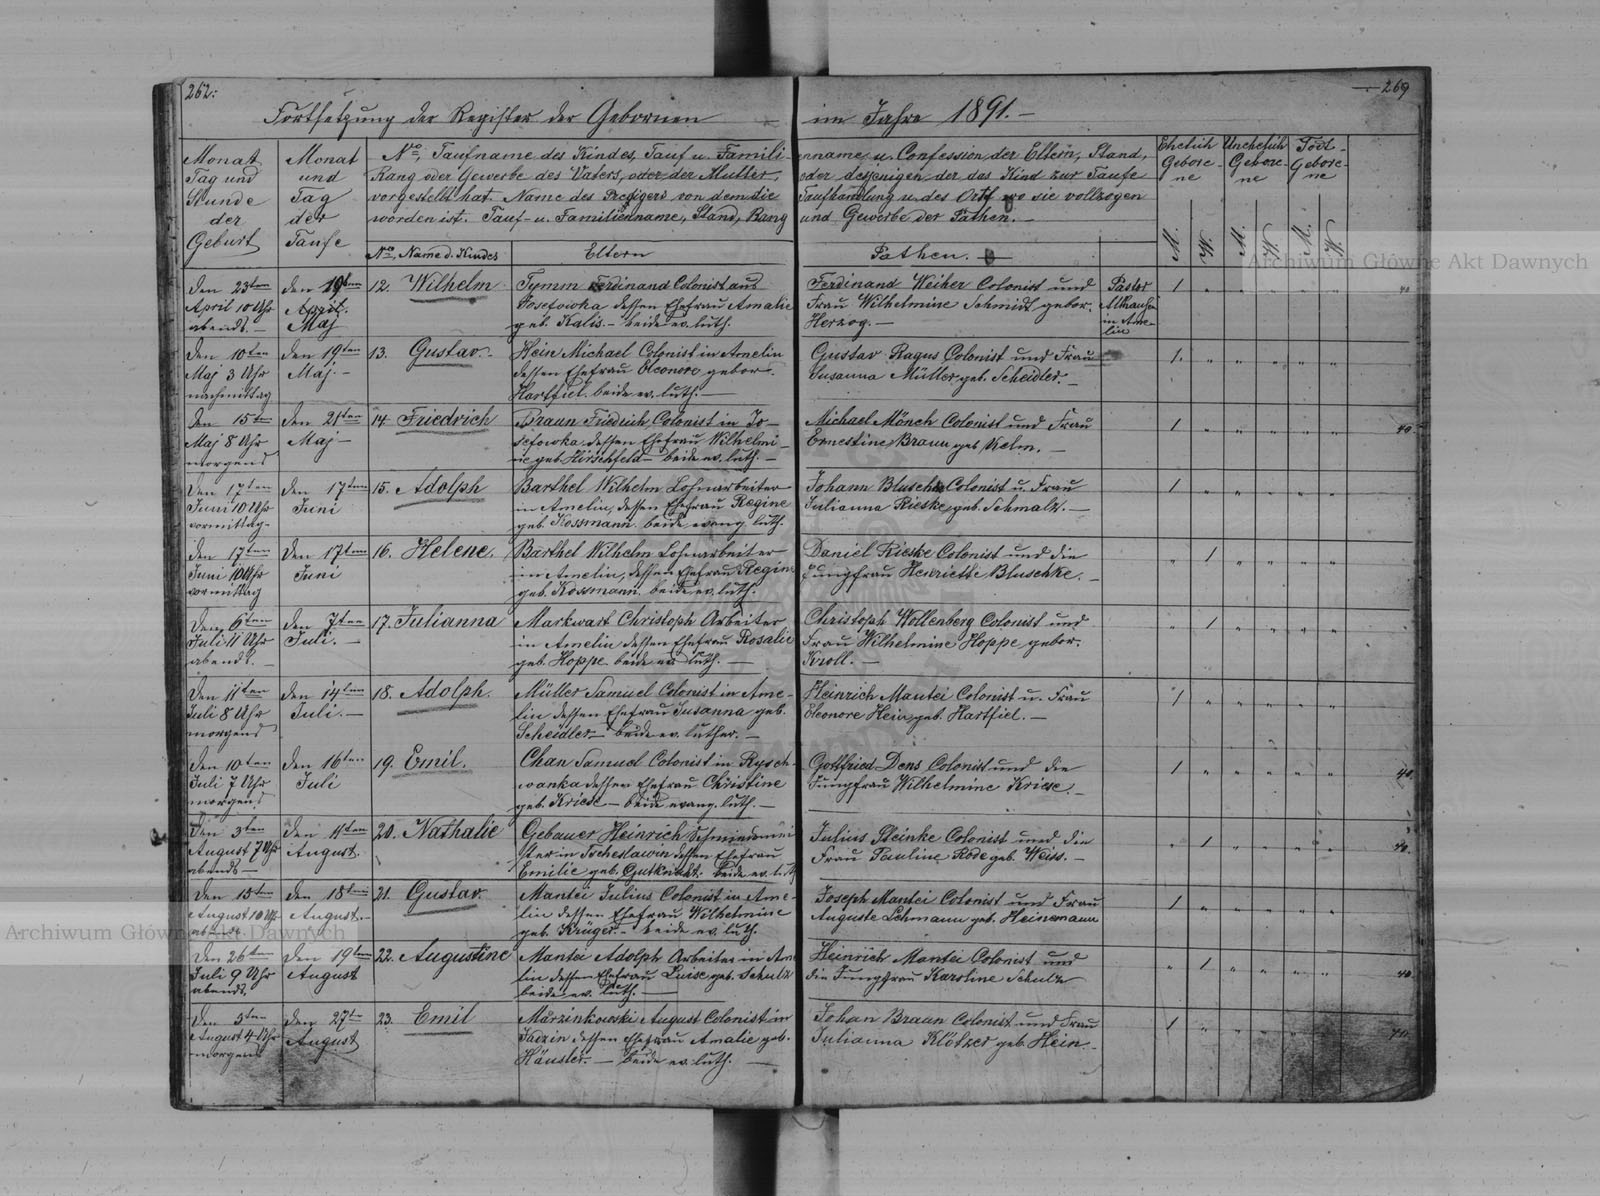 262.
269
Fortsetzung der Register der Gebornen im Jahre 1891.
Monat
Tag und
Stunde
der
Geburt
Monat
und
Tag
der
Taufe
No, Taufname des Kindes, Tauf u. Familienname u. Confession der Eltern, Stand,
Rang oder Gewerbe des Vaters, oder der Mutter, oder desjenigen der das Kind zur Taufe
vorgestellt hat. Name des Predigers von dem die Taufhandlung u. des Orts wo sie vollzogen
worden ist. Tauf- u. Familienname, Stand, Rang und Gewerbe der Pathen.
Ehelich
Gebore-
ne
Unehelich
Gebore-
ne
Todt-
Gebore-
ne
No, Name d. Kindes
Eltern
Pathen.
M. W. M. W. M. W.
den 23ten
April 10 Uhr
abends.
den 19ten
April.
Maj
12. Wilhelm
Tymm Ferdinand Colonist aus
Josefowka dessen Ehefrau Amalie
geb. Kalis. beide ev. luth.
Ferdinand Weiher Colonist und
Frau Wilhelmine Schmidt gebor.
Herzog.
Pastor
Althausen
in Ame-
lin
1
den 10ten
Maj 3 Uhr
nachmittag
den 19ten
Maj.
13. Gustav.
Hein Michael Colonist in Amelin
dessen Ehefrau Eleonore gebor.
Hartfiel. beide ev. luth.
Gustav Ragus Colonist und Frau
Susanna Müller geb. Scheidler.
1.
den 15ten
Maj 8 Uhr
morgens
den 21ten
Maj
14 Friedrich
Braun Friedrich Colonist in Jo-
sefowka dessen Ehefrau Wilhelmi-
ne geb. Hirschfeld beide ev. luth.
Michael Mönch Colonist und Frau
Ernestine Braun geb Kelm.
1
40.
den 17ten
Juni 10 Uhr
vormittag
den 17ten
Juni
15. Adolph
Barthel Wilhelm Lohnarbeiter
in Amelin, dessen Ehefrau Regine
geb. Kossmann. beide evang. luth.
Johann Bluschke Colonist u. Frau
Julianna Rieske geb. Schmalz.
1
den 17ten
Juni 10 Uhr
vormittag
den 17ten
Juni
16. Helene.
Barthel Wilhelm Lohnarbeiter
in Amelin, dessen Ehefrau Regine
geb. Kossmann. beide ev. luth.
Daniel Rieske Colonist und die
Jungfrau Henriette Bluschke.
1
den 6ten
Juli 11 Uhr
abends.
den 7ten
Juli.
17. Julianna
Markwart Christoph Arbeiter
in Amelin dessen Ehefrau Rosalie
geb. Hoppe beide ev luth.
Christoph Wollenberg Colonist und
Frau Wilhelmine Hoppe gebor.
Kroll.
1
den 11ten
Juli 8 Uhr
morgens
den 14ten
Juli.
18. Adolph.
Müller Samuel Colonist in Ame-
lin dessen Ehefrau Susanna geb.
Scheidler beide ev. luther.
Heinrich Mantei Colonist u. Frau
Eleonore Hein geb. Hartfiel.
1
den 10ten
Juli 7 Uhr
morgens
den 16ten
Juli
19. Emil.
Chan Samuel Colonist in Rysch-
wanka dessen Ehefrau Christine
geb. Kriese beide evang. luth.
Gottfried Dens Colonist und die
Jungfrau Wilhelmine Kriese.
1
40.
den 3ten
August 7 Uhr
abends
den 11ten
August.
20. Nathalie
Gebauer Heinrich Schmiedemei
ster in dessen Ehefrau
Emilie geb. Gutknecht. beide ev. luth
Julius Steinke Colonist und die
Frau Pauline Rode geb. Weiss.
1
40.
den 15ten
August 10 Uhr
abends
den 18ten
August.
21. Gustav.
Mantei Julius Colonist in Ame-
lin dessen Ehefrau Wilhelmine
geb. Krüger. beide ev. luth.
Joseph Mantei Colonist und Frau
Auguste Lehmann geb. Heinemann
1
den 26ten
Juli 9 Uhr
abends.
den 19ten
August
22. Augustine
Mantei Adolph Arbeiter in Ame
lin dessen Ehefrau Luise geb. Schulz
beide ev. luth.
Heinrich Mantei Colonist und
die Jungfrau Karoline Schulz
1
40.
den 5ten
August 4 Uhr
morgens
den 27ten
August
23. Emil
Marzinkowski August Colonist in
dessen Ehefrau Amalie geb.
Häusler. beide ev. luth.
Johan Braun Colonist und Frau
Julianna Klötzer geb. Hein.
1
Archiwum Główne Akt Dawnych
Archiwum Główne Akt Dawnych